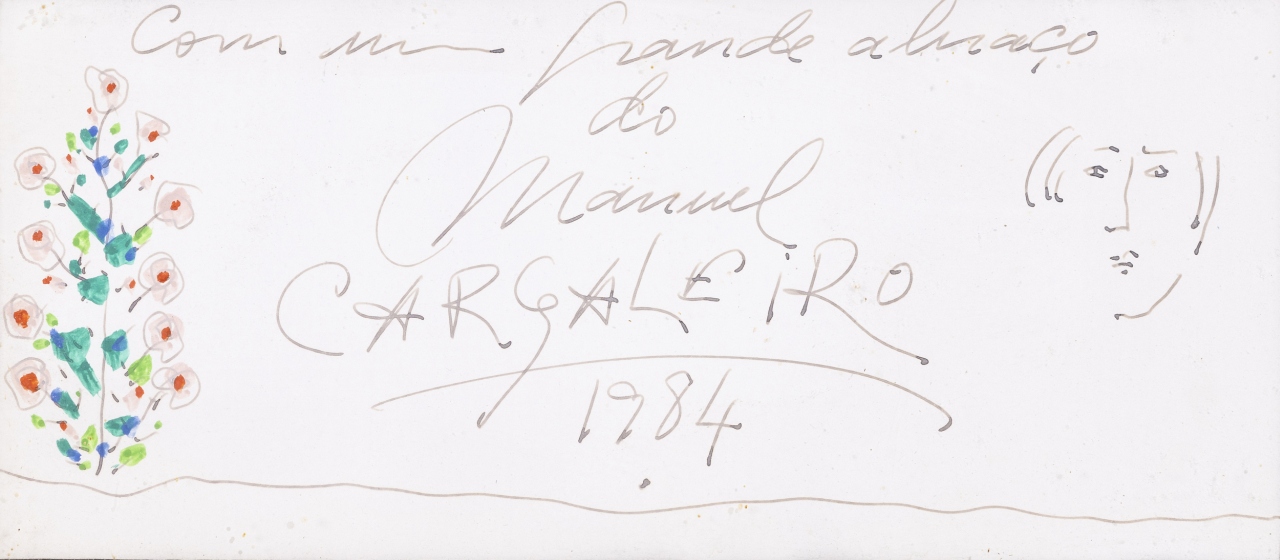 Com um grande abraço
do
Manuel
CARGALEIRO
1984